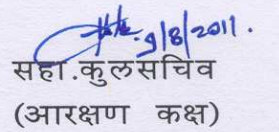 9/8/2011.
सहा.कुलसचिव
(आरक्षण कक्ष)